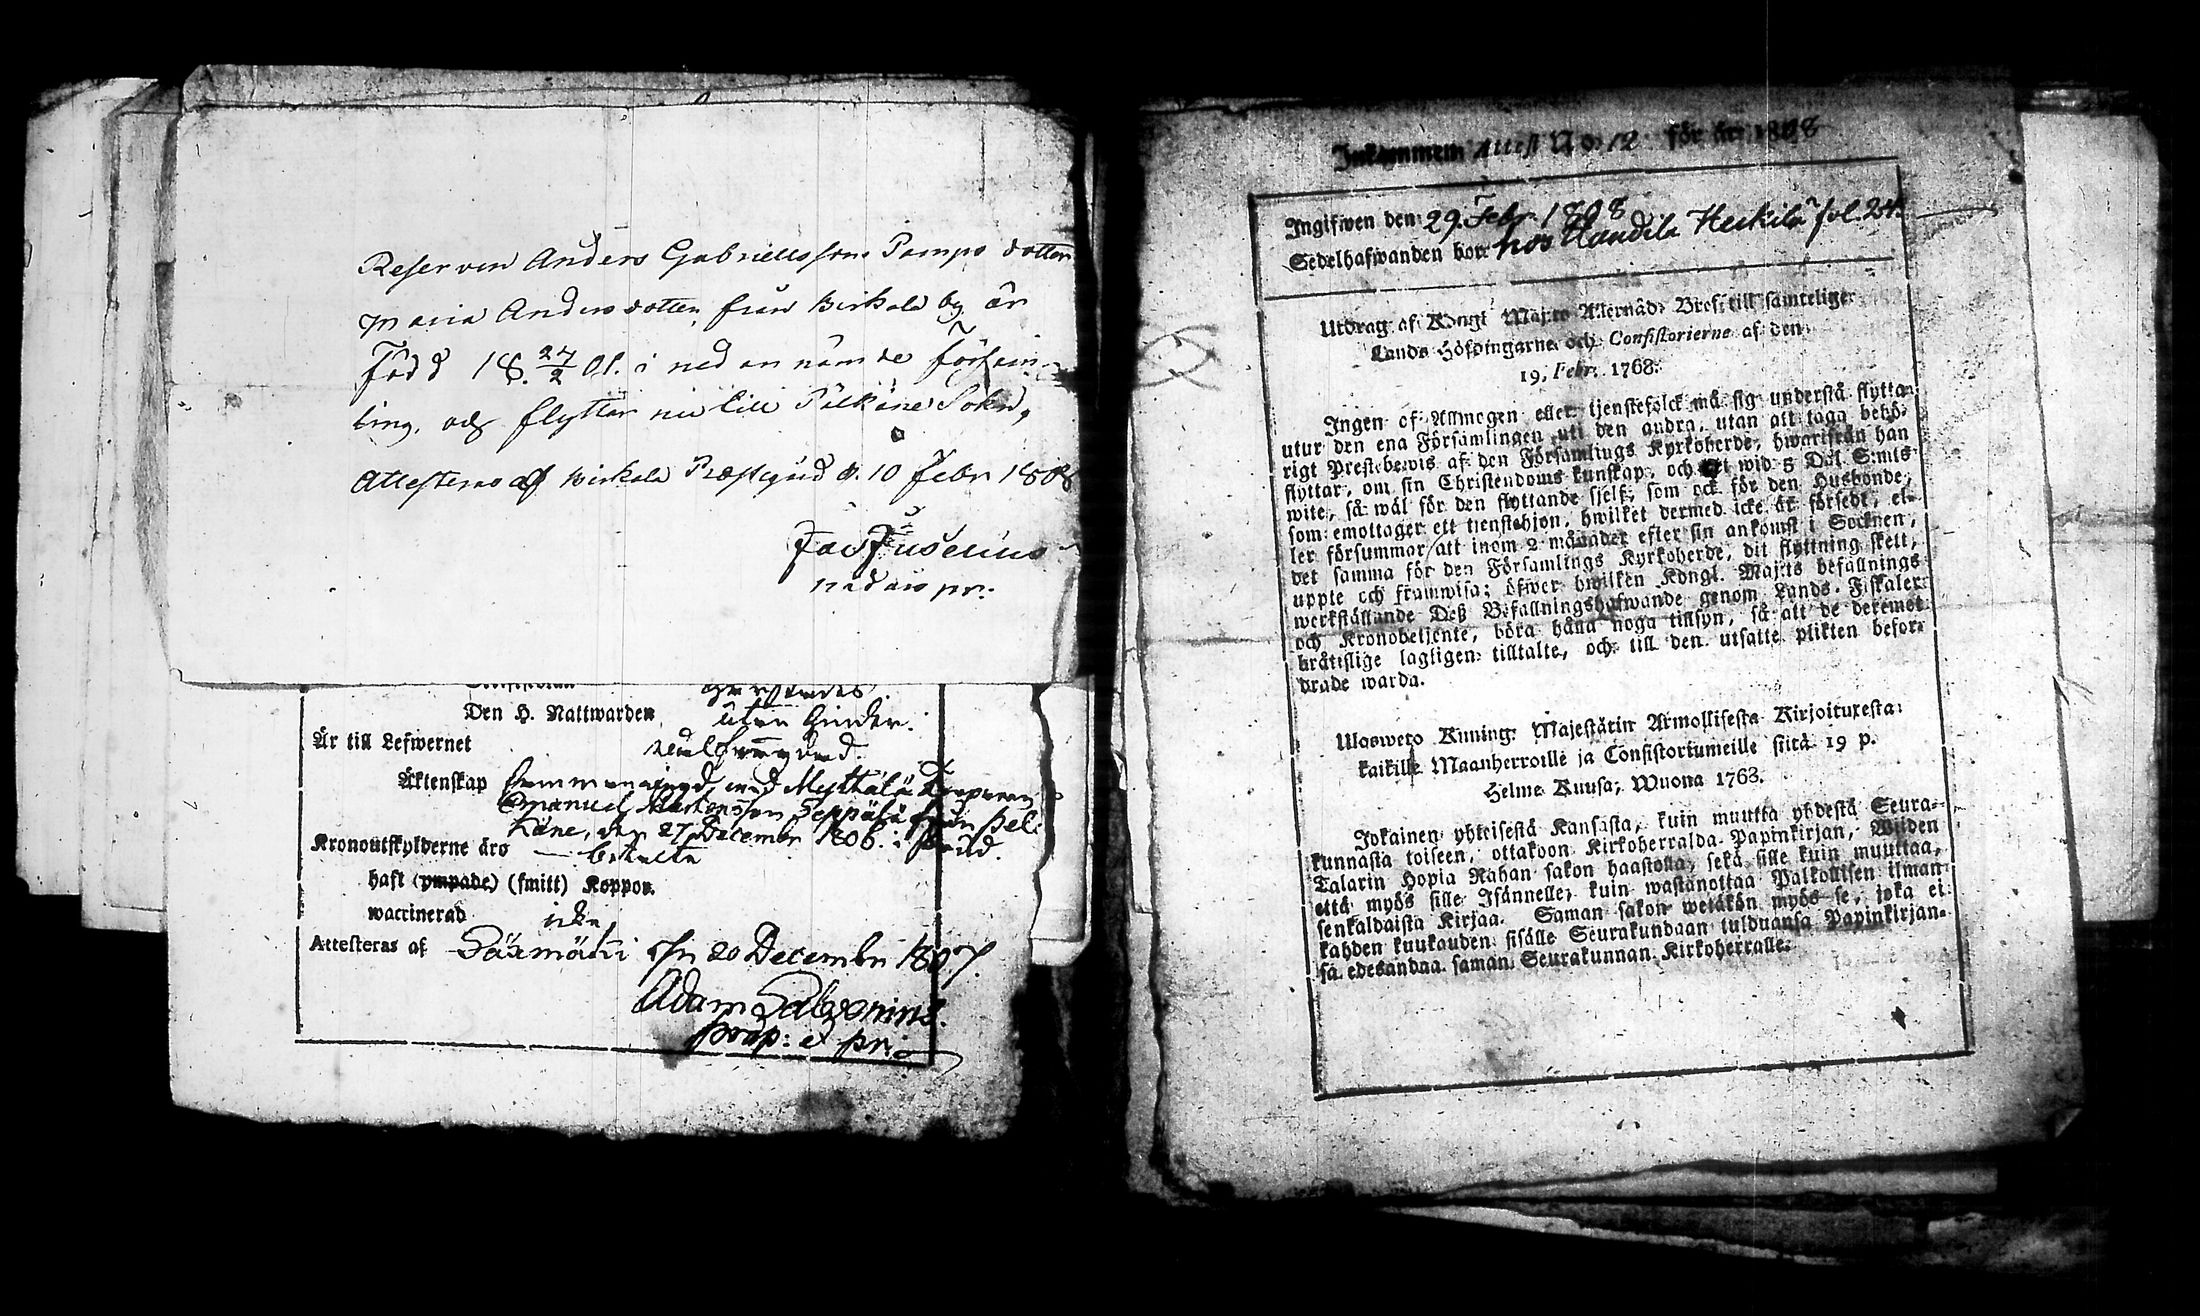 Reserven Anders Gabrielssons Pamps dotter
Maria Andersdotter från Birkala by är
Född 18 27/2 01. i nedannämde Försam-
ling, och flyttar nu till Pälkäne Sokn,
Attesteras af Birkala Prästegård d. 10 Febr 1808
Jac Juselius
Den H. Nattwarden utan hinder.
Är till Lefwernet
Äktenskap med Myttälä
Emanuel Mårtensson Seppälä från Pel-
käne, den 27 December 1806.
Kronoutskylderne äro — betalta
haft (ympade) (smitt) Koppor.
waccinerad icke
Attesteras af Sääxmäki den 20 December 1807.
Adam
præp: et pr:
Inkommen Attest N:o 12 för år 1808
Ingifwen den 29 Febr. 1808
Sedelhafwanden bor hos Haudila Heikilä fol. 24.
Utdrag af Kongl Maj:ts Allernåd. Bref till samtelige
Lands Höfdingarne och Consistorierne af den
19. Febr. 1768.
Ingen af Allmogen eller tjenstefolck må sig understå flytta
utur den ena Församlingen uti den andra, utan att taga behö-
rigt Prestebewis af den Församlings Kyrkoherde, hwarifrån han
flyttar, om sin Christendoms kunskap, och det wid 5 Dal. S:mts
wite, så wäl för den flyttande sjelf, som ock för den Husbonde,
som emottager ett tjenstehjon, hwilket dermed icke är försedt, el-
ler försummar att inom 2 månader efter sin ankomst i Socknen,
det samma för den Församlings Kyrkoherde, dit flyttning skett,
uppte och framwisa; öfwer hwilken Kongl. Maj:ts befallnings
werkställande Deß Befallningshafwande genom Lands-Fiskaler
och Kronobetjente, böra hålla noga tillsyn, så att de deremot
bråttslige lagligen tilltalte, och till den utsatte plikten befor-
drade warda.
Ulosweto Kuning. Majestätin Armollisesta Kirjoituxesta
kaikille Maanherroille ja Consistoriumeille siitä 19 p.
Helme Kuusa, Wuona 1763.
Jokainen yhteisestä Kansasta, kuin muutta yhdestä Seura-
kunnasta toiseen, ottakoon Kirkoherralda Papinkirjan, Wiiden
Talarin Hopia Rahan sakon haastolla, sekä sille kuin muuttaa,
että myös sille Isännelle, kuin wastanottaa Palkollisen ilman
senkaldaista Kirjaa. Saman sakon wetäkön myös se, joka ei
kahden kuukauden sisälle Seurakundaan tulduansa Papinkirjan-
sa edesandaa saman Seurakunnan Kirkoherralle.